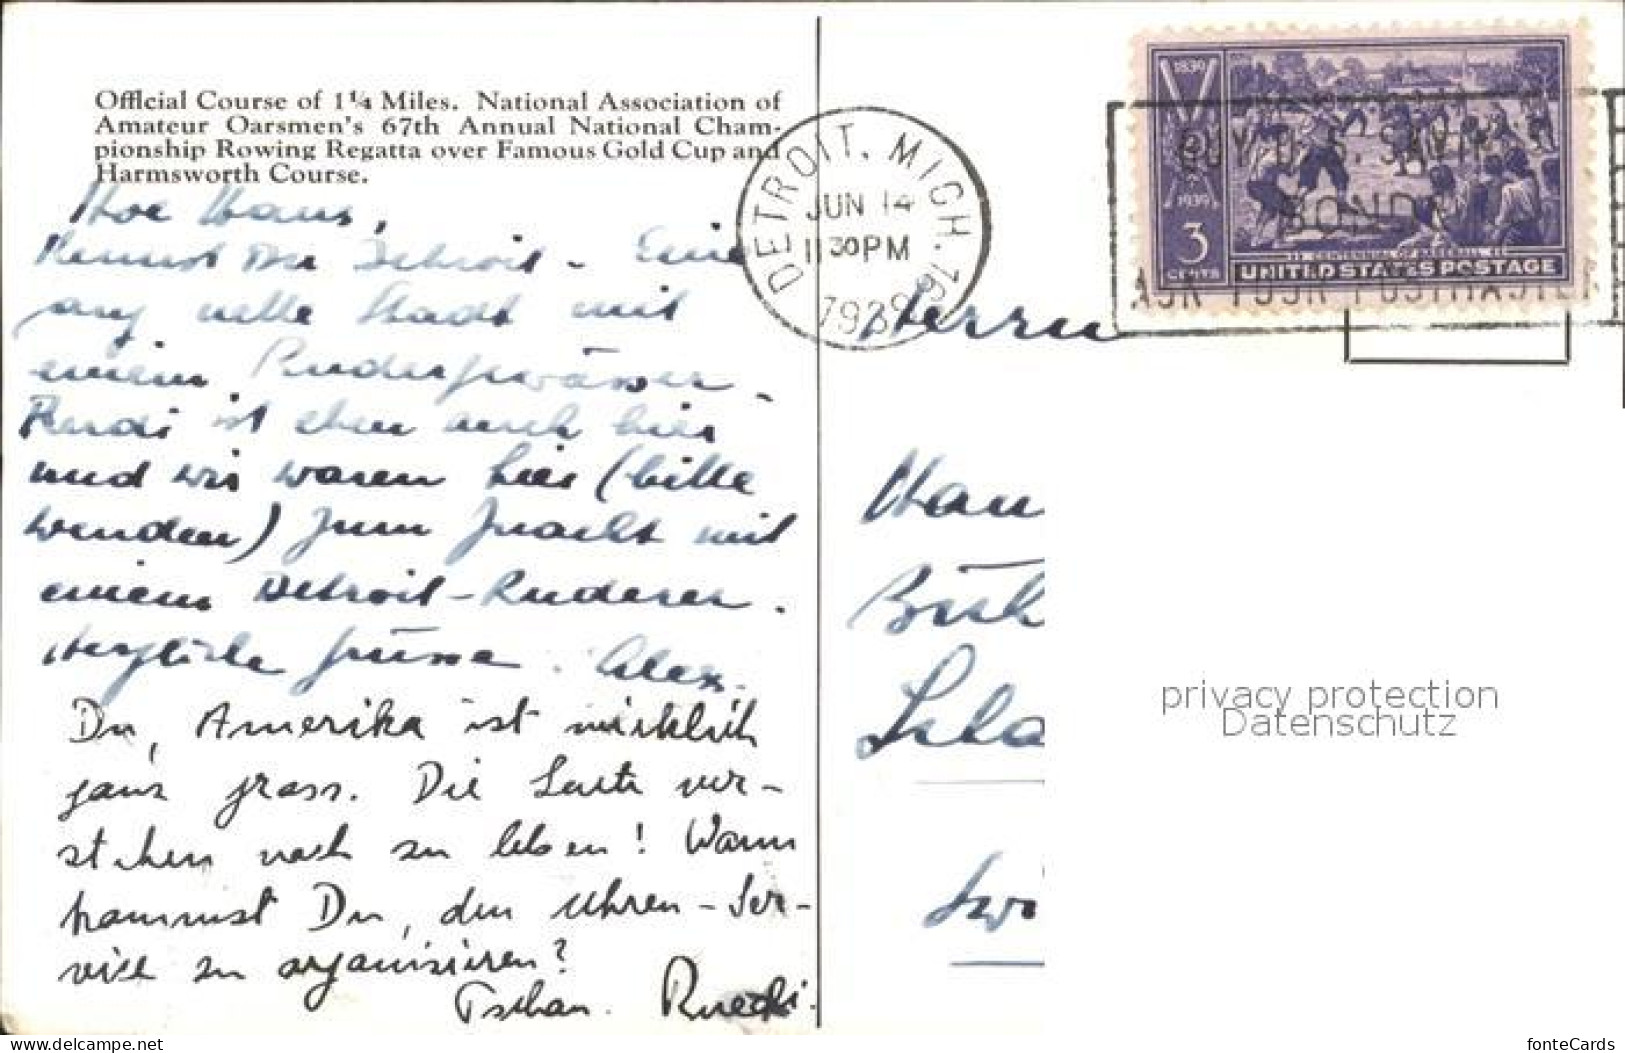 Official Course of 1¼ Miles. National Association of
Amateur Oarsmen's 67th Annual National Cham-
pionship Rowing Regatta over Famous Gold Cup and
Harmsworth Course.
Hans,
Kennst Du Detroit - Eine
nette Stadt mit
einem Rudergewässer.
Ruedi ist eben auch hier
und wir waren hier (bitte
wenden) zum znacht mit
einem Detroit-Ruderer.
Herzliche grüsse. Alex.
Du, Amerika ist wirklich
ganz gross. Die Leute ver-
stehen noch zu leben! Wann
kommst Du, den Uhren-Ser-
vice zu organisieren?
Tschau. Ruedi.
DETROIT, MICH.
JUN 14
11 30 PM
1939
BUY U.S. SAVINGS
BONDS
ASK YOUR POSTMASTER
1839
1939
3
CENTS
CENTENNIAL OF BASEBALL
UNITED STATES POSTAGE
Herrn
Han
privacy protection
Datenschutz
delcampe.net
fonteCards